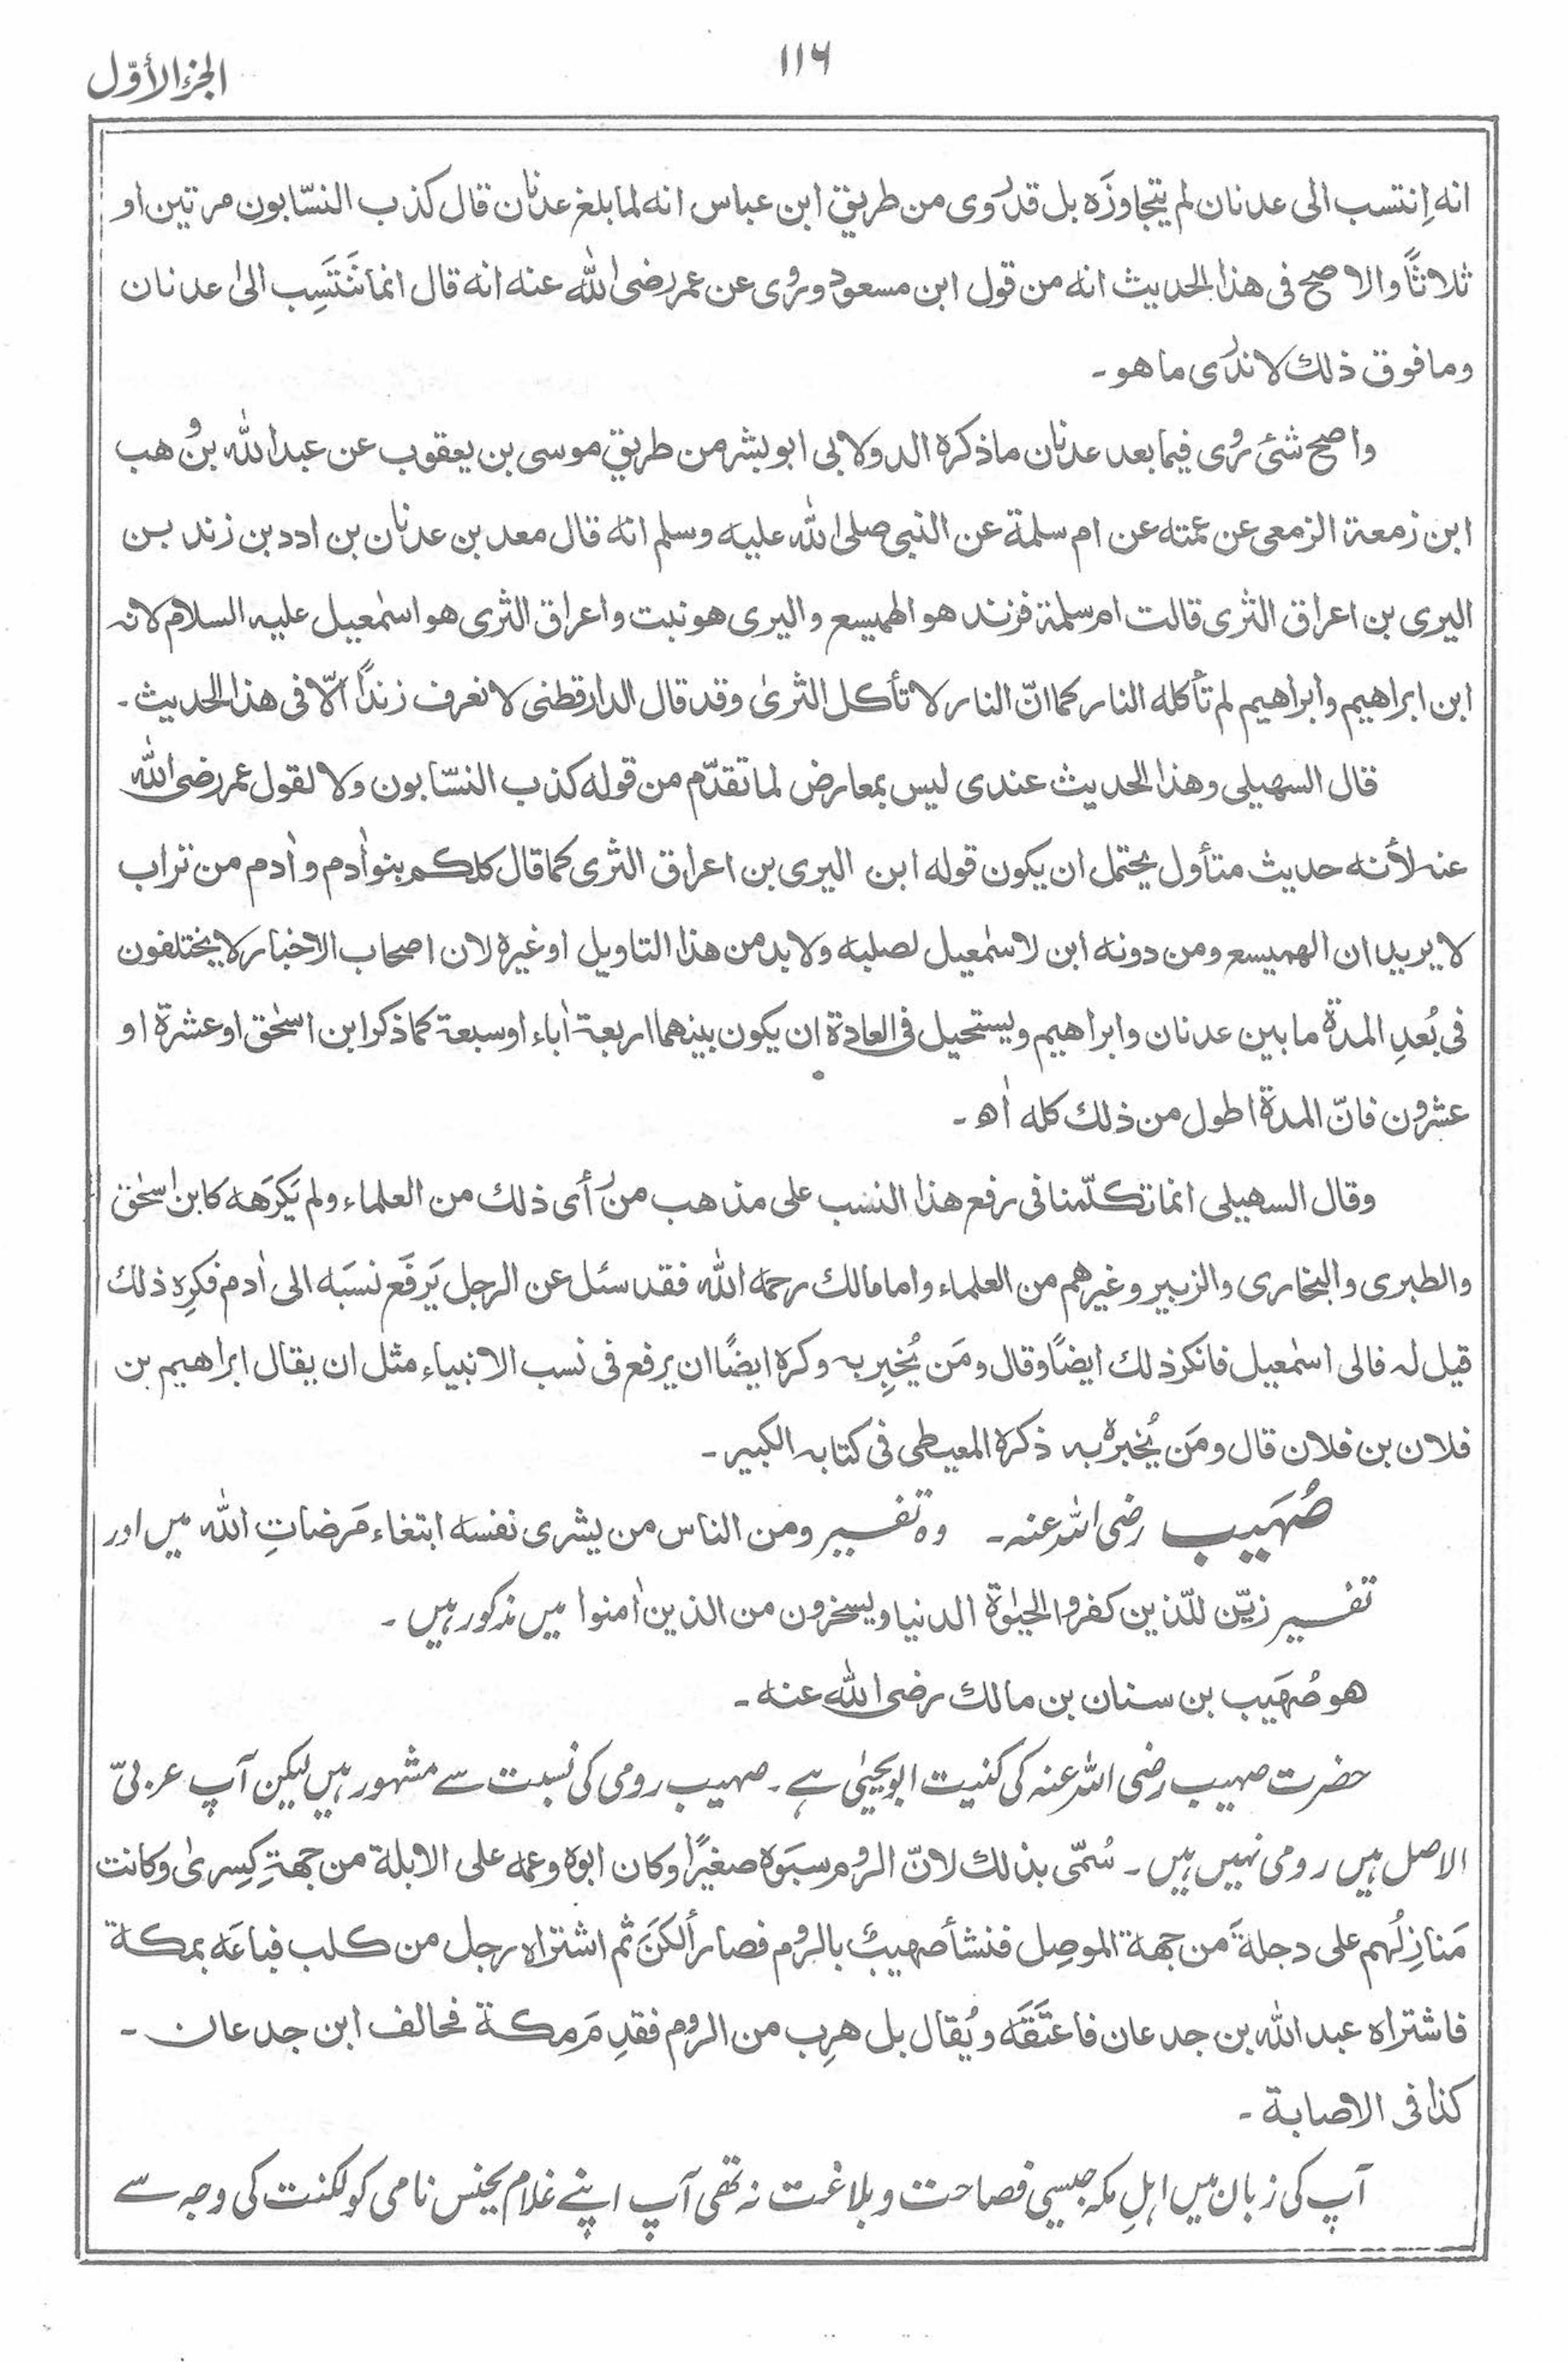 ١١٦
الجزء الأوّل
انه اِنتسب الی عدنان لم يتجاوزَه بل قد رُوی من طریق ابن عباس انه لما بلغ عدنان قال کذب النسّابون مرتین او
ثلاثًا والاصح فی هذا الحدیث انه من قول ابن مسعود ورُوی عن عمر رضی الله عنه انه قال انما نَنتَسِب الیٰ عدنان
وما فوق ذلك لا ندری ما هو۔
واصح شئ رُوی فیما بعد عدنان ما ذکره الدولابی ابو بشر من طریق موسی بن یعقوب عن عبد الله بن وُهب
ابن زمعة الزمعی عن عمته عن ام سلمة عن النبی صلی الله علیه وسلم انه قال معد بن عدنان بن ادد بن زند بن
الیری بن اعراق الثری قالت ام سلمة فزند هو الهمیسع والیری هو نبت واعراق الثری هو اسمٰعیل علیه السلام لانه
ابن ابراهیم وابراهیم لم تأکله النار کما انّ النار لا تأکل الثریٰ وقد قال الدارقطنی لا نعرف زندًا الّا فی هذا الحدیث۔
قال السهیلی وهذا الحدیث عندی لیس بمعارض لما تقدّم من قوله کذب النسّابون ولا لقول عمر رضی الله
عنه لأنه حدیث متأول یحتمل ان یکون قوله ابن الیری بن اعراق الثری کما قال کلکم بنو اٰدم و اٰدم من تراب
لا یرید ان الهمیسع ومن دونه ابن لاسمٰعیل لصلبه ولا بد من هذا التاویل او غیره لان اصحاب الاخبار لا یختلفون
فی بُعدِ المدة ما بین عدنان وابراهیم ویستحیل فی العادة ان یکون بینهما اربعة اٰباء او سبعة کما ذکر ابن اسحٰق او عشرة او
عشرون فانّ المدة اطول من ذلك کله اٰه۔
وقال السهیلی انما تکلّمنا فی رفع هذا النسب علی مذهب من رَأی ذلك من العلماء ولم یَکرَهه کابن اسحٰق
والطبری والبخاری والزبیر وغیرهم من العلماء واما مالك رحمه الله فقد سئل عن الرجل یَرفَع نسبَه الی اٰدم فکرِه ذلك
قیل له فالی اسمٰعیل فانکر ذلك ایضًا وقال ومَن یُخبِر به وکره ایضًا ان یرفع فی نسب الانبیاء مثل ان یقال ابراهیم بن
فلان بن فلان قال ومَن یُخبره به ذکره المعیطی فی کتابه الکبیر۔
صُهَیب رضی اللہ عنہ۔ وہ تفسیر ومن الناس من یشری نفسه ابتغاء مَرضاتِ الله میں اور
تفسیر زیّن للّذین کفروا الحیٰوة الدنیا ویسخرون من الذین اٰمنوا میں مذکور ہیں۔
هو صُهَیب بن سنان بن مالك رضی الله عنه۔
حضرت صہیب رضی اللہ عنہ کی کنیت ابو یحییٰ ہے۔ صہیب رومی کی نسبت سے مشہور ہیں لیکن آپ عربیّ
الاصل ہیں رومی نہیں ہیں۔ سُمّی بذلك لانّ الروم سبَوه صغیرًا وکان ابوه وعمه علی الابلة من جهةِ کِسریٰ وکانت
مَنازِلُهم علی دجلةَ من جهة الموصِل فنشأ صهیبٌ بالروم فصار ألکنَ ثم اشتراه رجل من کلب فباعَه بمکة
فاشتراه عبد الله بن جدعان فاعتَقَه ویُقال بل هرِب من الروم فقدِمَ مکة فحالف ابن جدعان۔
کذا فی الاصابة۔
آپ کی زبان میں اہلِ مکہ جیسی فصاحت و بلاغت نہ تھی آپ اپنے غلام یحنس نامی کو لکنت کی وجہ سے